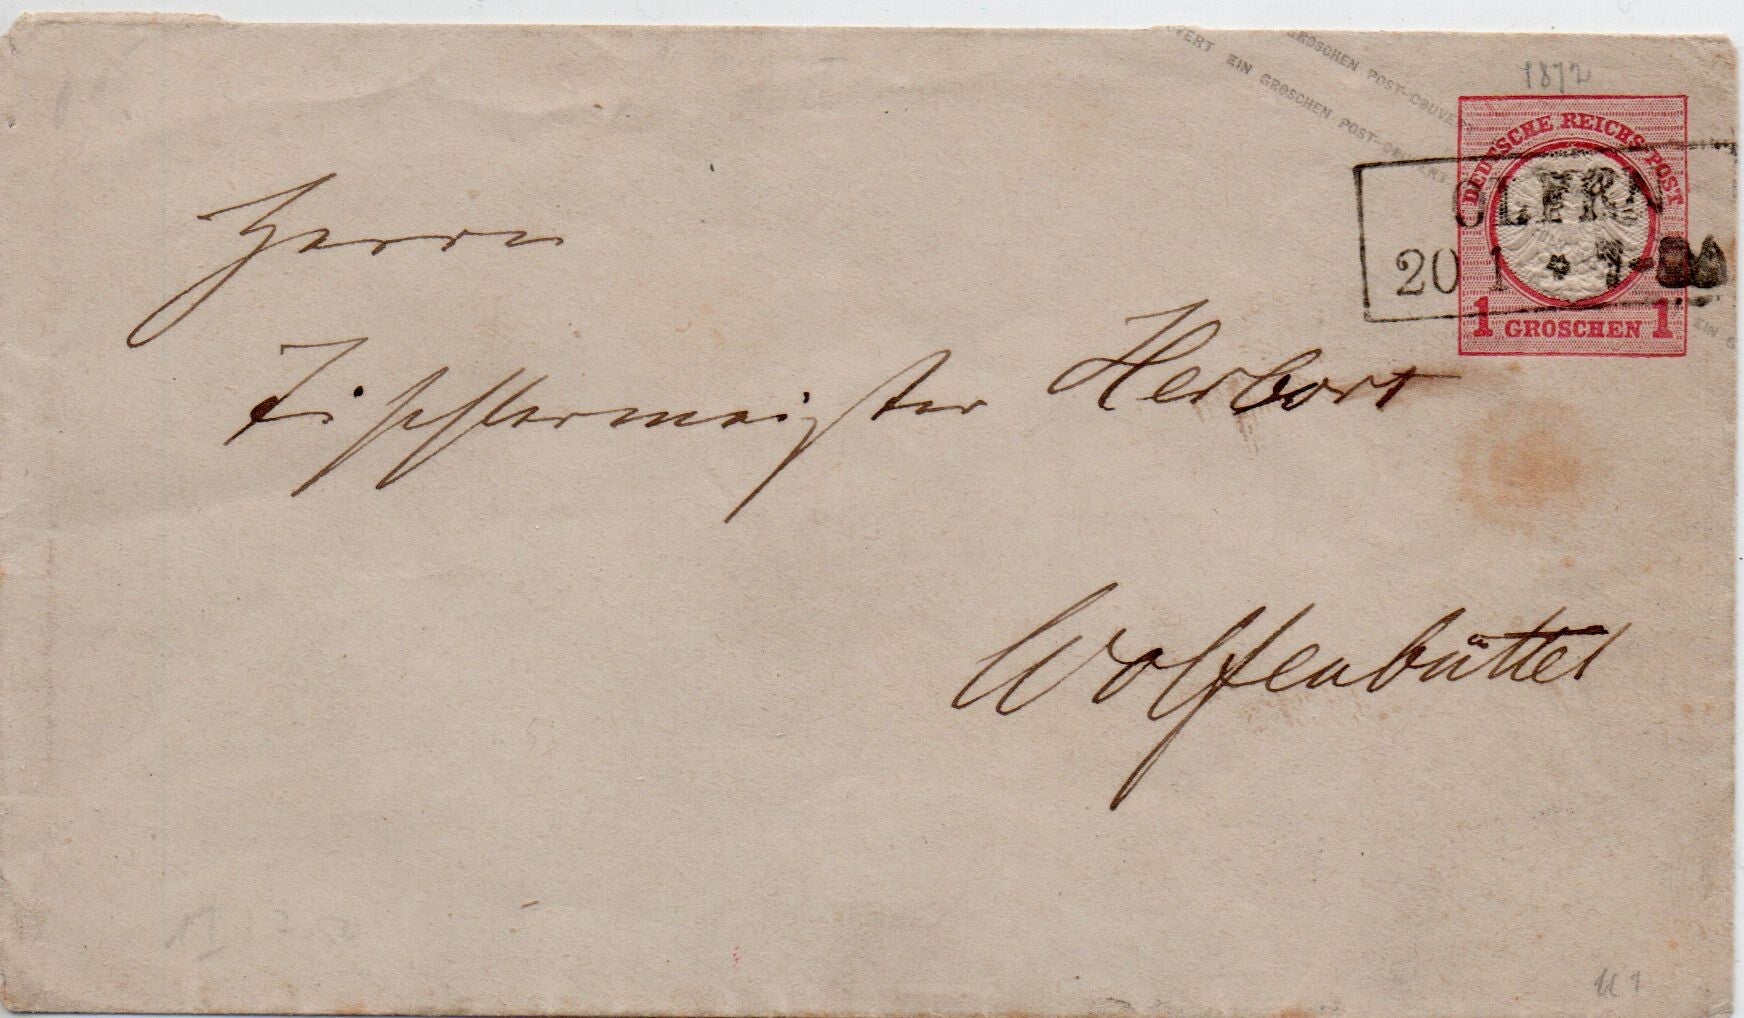 VERT EIN GROSCHEN POST-COUVERT
GROSCHEN POST-COUVERT
1872
DEUTSCHE REICHS-POST
20 1 * 7-8A
1 GROSCHEN 1
EIN G
Herrn
Tischlermeister Herbort
Wolfenbüttel
U 1